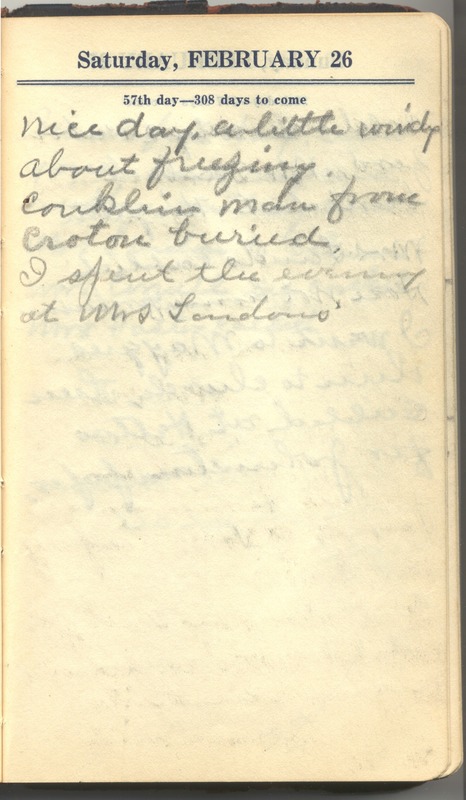 Saturday, FEBRUARY 26
57th day—308 days to come
nice day, a little windy
about freezing.
Conklin man from
Croton buried.
I spent the evening
at Mrs Landons'